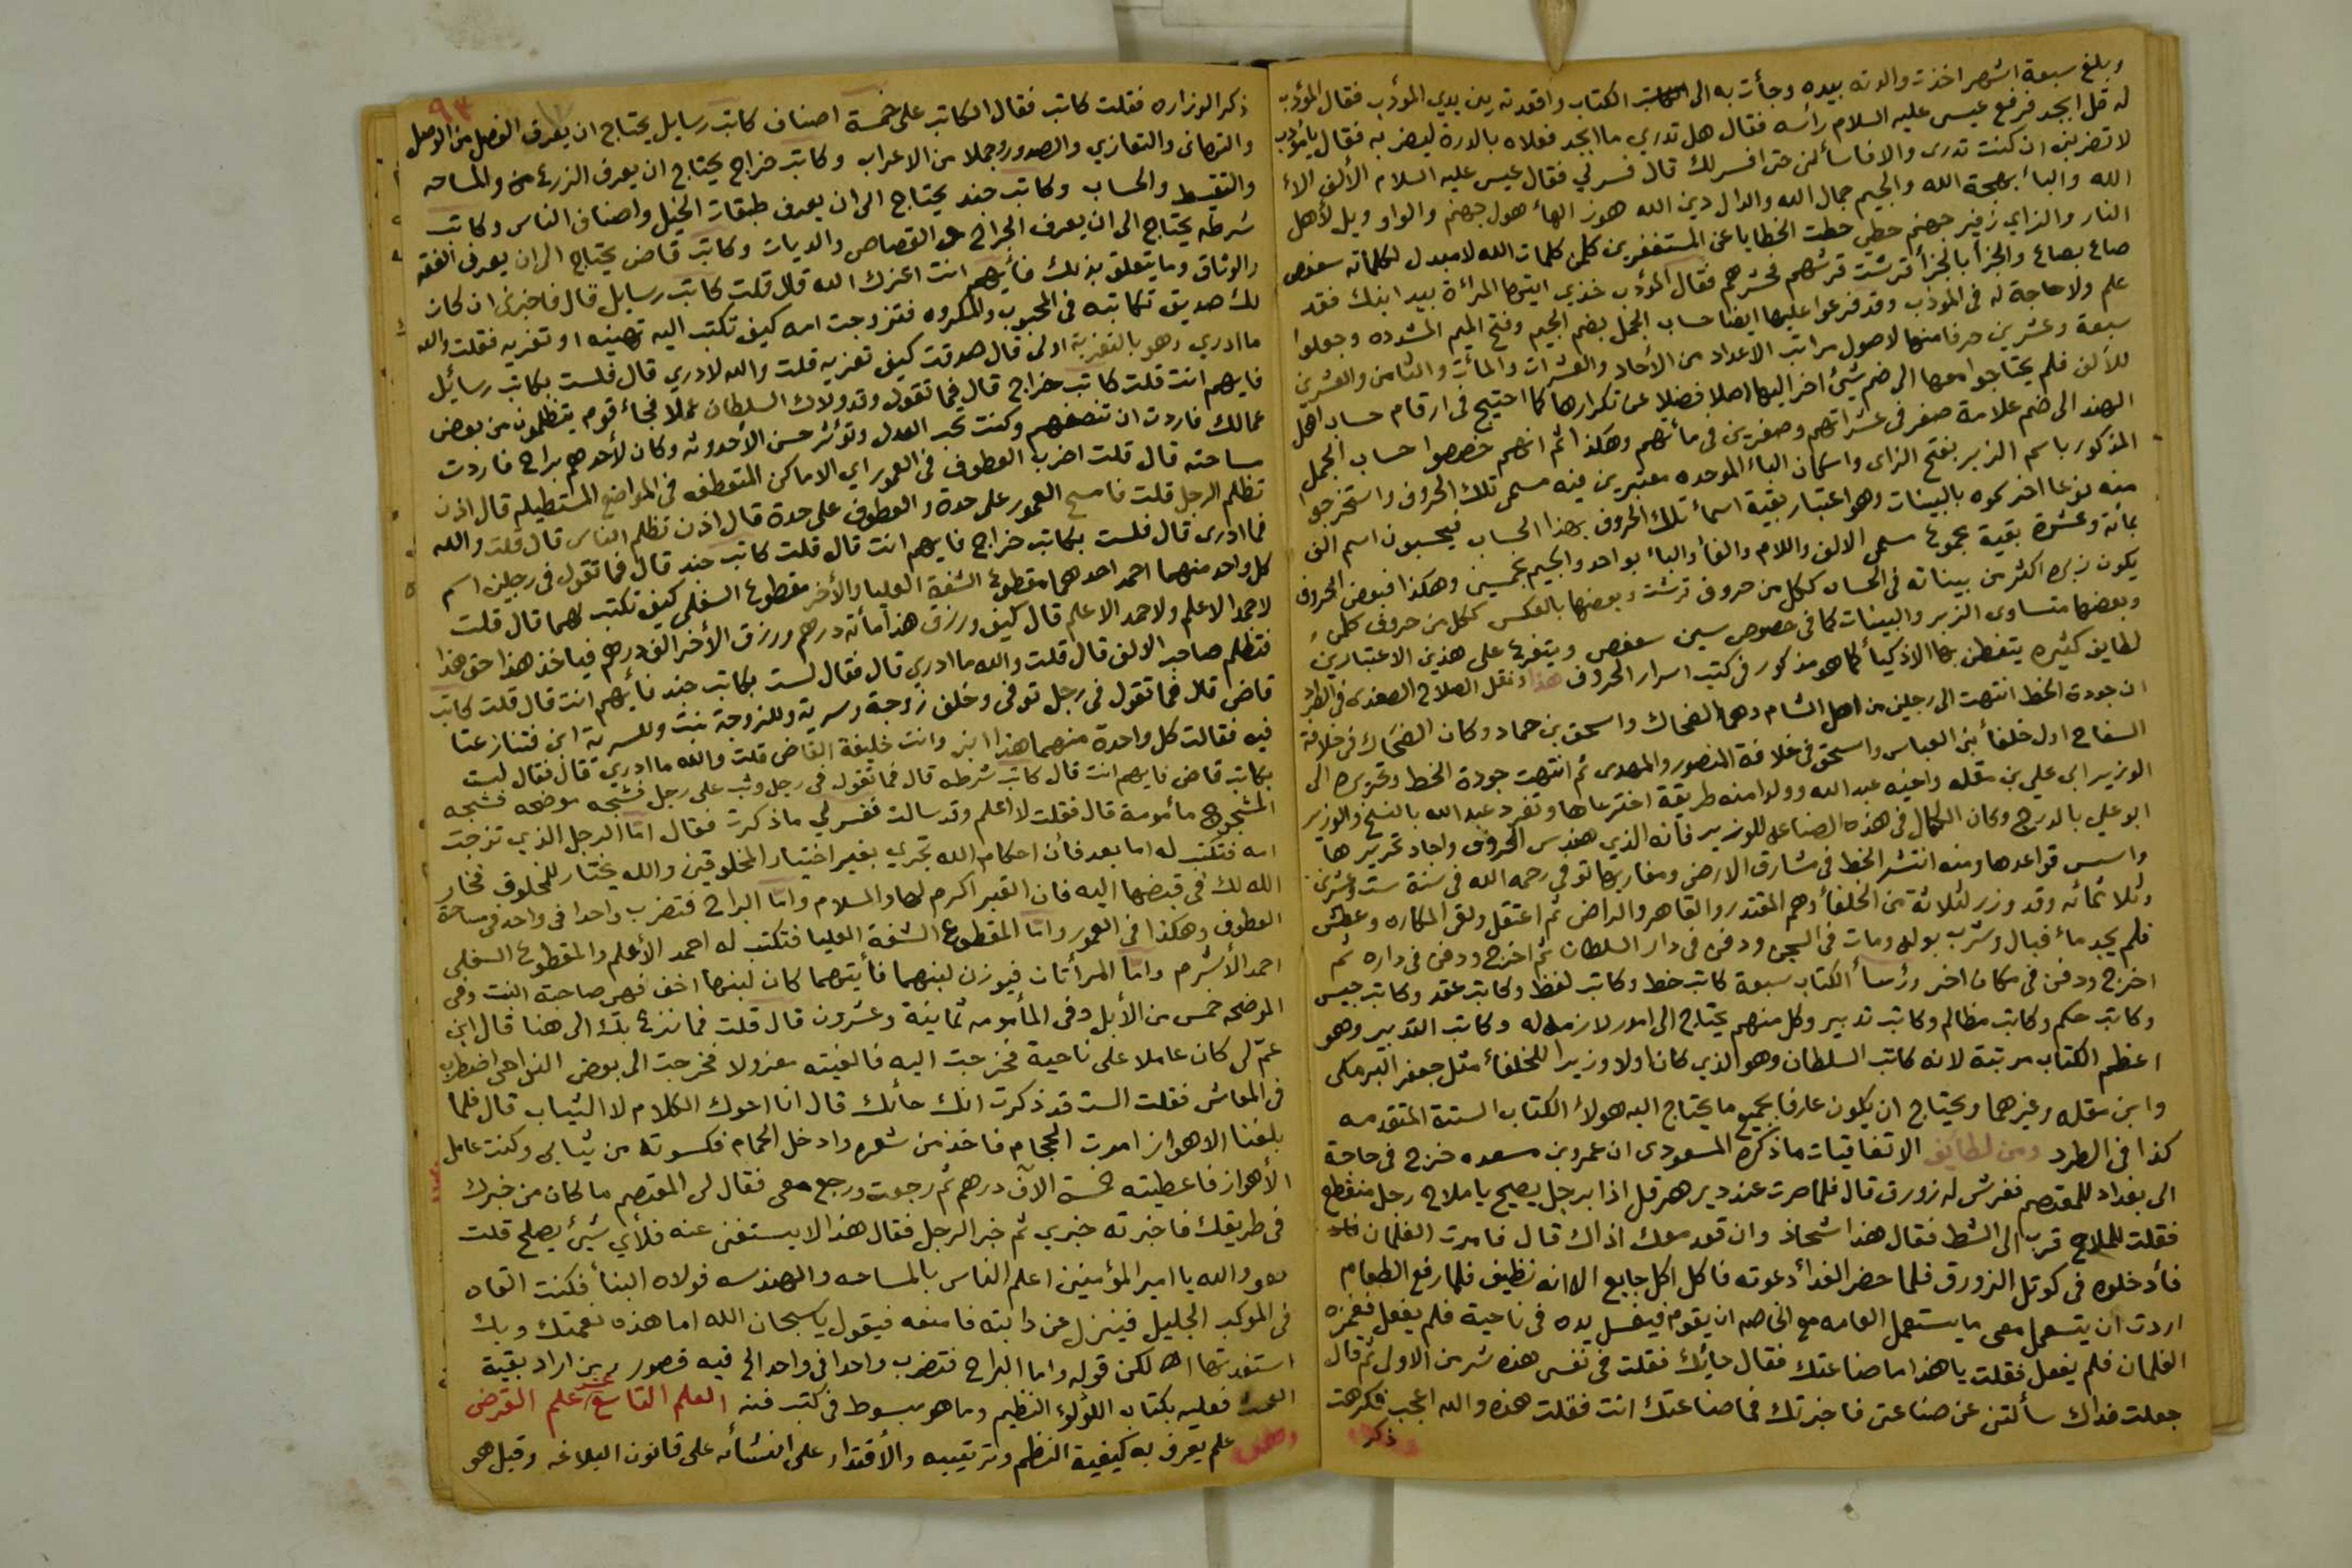 وبلغ سبعة اشهر اخذت والدته بيده وجأت به الى الكتاب واقعدته بين يدي المؤدب فقال المؤدب
له قل ابجد فرفع عيسى عليه السلام رأسه فقال هل تدري ما ابجد فعلاه بالدرة ليضربه فقال يا مؤدب
لا تضربني ان كنت تدرى والا فاسألني حتى افسر لك قال فسر لي فقال عيسى عليه السلام الألف الاء
الله والباء بهجة الله والجيم جمال الله والدال دين الله هوز الهاء هول جهنم والواو ويل لأهل
النار والزاي زفير جهنم حطي حطت الخطايا عن المستغفرين كلمن كلمات الله لا مبدل لكلماته سعفص
صاع بصاع والجزأ بالجزأ قرشت قرشهم فحشرهم فقال المؤدب خذي ايتها المرأة بيد ابنك فقد
علم ولا حاجة له في المؤدب وقد فرعوا عليها ايضا حساب الجمل بضم الجيم وفتح الميم المشدده وجعلوا
سبعة وعشرين حرفا منها لاصول مراتب الاعداد من الأحاد والعشرات والمأت والثامن والعشرين
للألف فلم يحتاجوا معها الى ضم شيئ اخر اليها اصلا فضلا عن تكرارها كما احتيج في ارقام حساب اهل
الهند الى ضم علامة صفر في عشراتهم وصفرين في مأتهم وهكذا ثم انهم خصصوا حساب الجمل
المذكور باسم الزبر بفتح الزاى واسكان الباء الموحده معتبرين فيه مسمى تلك الحروف واستخرجوا
منه نوعا اخر سموه بالبينات وهو اعتبار بقية اسمأ تلك الحروف بهذا الحساب فيحسبون اسم الف
بمأئة وعشرة بقية مجموع مسمى الالف واللام والفأ والباء بواحد والجيم بخمسين وهكذا فبعض الحروف
يكون زبره اكثر من بيناته في الحساب ككل من حروف قرشت وبعضها بالعكس ككل من حروف كلمن
وبعضها متساوى الزبر والبينات كما في خصوص سين سعفص ويتفرع على هذين الاعتبارين
لطايف كثيره يتفطن بها الاذكيأ كما هو مذكور في كتب اسرار الحروف هذا ونقل الصلاح الصفدى في الطرد
ان جودة الخط انتهت الى رجلين من اهل الشام وهما الضحاك واسحق بن حماد وكان الضحاك في خلافة
السفاح اول خلفأ بني العباس واسحق في خلافة المنصور والمهدى ثم انتهت جودة الخط وتحريره الى
الوزير ابي علي بن مقله واخيه عبد الله وولدا منه طريقة اخترعاها وتفرد عبد الله بالنسخ والوزير
ابو علي بالدرج وكان الكمال في هذه الصناعه للوزير فانه الذي هندس الحروف واجاد تحريرها
واسس قواعدها ومنه انتشر الخط في مشارق الارض ومغاربها توفي رحمه الله في سنة ست وعشرين
وثلاثمائه وقد وزر لثلاثة من الخلفأ وهم المقتدر والقاهر والراضي ثم اعتقل ولقي المكاره وعطش
فلم يجد مأ فبال وشرب بوله ومات في السجن ودفن في دار السلطان ثم اخرج ودفن في داره ثم
اخرج ودفن في مكان اخر ورؤسأ الكتاب سبعة كاتب خط وكاتب لفظ وكاتب عقد وكاتب جيس
وكاتب حكم وكاتب مظالم وكاتب تدبير وكل منهم يحتاج الى امور لازمه له وكاتب التدبير وهو
اعظم الكتاب مرتبة لانه كاتب السلطان وهو الذي كان اولا وزيرا للخلفأ مثل جعفر البرمكى
وابن مقله وغيرهما ويحتاج ان يكون عارفا بجميع ما يحتاج اليه هولأ الكتاب الستة المتقدمه
كذا في الطرد ومن لطايف الاتفاقيات ما ذكره المسعودى ان عمرو بن مسعده خرج في حاجة
الى بغداد للمعتصم ففرش له زورق قال فلما صرت عند دير هرقل اذا برجل يصيح يا ملاح رجل منقطع
فقلت للملاح قرب الى الشط فقال هذا شحاذ وان قعد معك اذاك قال فامرت الغلمان
فأدخلوه في كوتل الزورق فلما حضر الغدأ دعوته فاكل اكل جايع الا انه نظيف فلما رفع الطعام
اردت ان يستعمل معي ما يستعمل العامه مع الخاصه ان يقوم فيغسل يده في ناحية فلم يفعل فغمزه
الغلمان فلم يفعل فقلت يا هذا ما صناعتك فقال حايك فقلت في نفسي هذه شر من الاولى ثم قال
جعلت فداك سألتني عن صناعتي فاخبرتك فما صناعتك انت فقلت هذه والله اعجب فكرهت
ذكر
٩٣
ذكر الوزاره فقلت كاتب فقال الكاتب على خمسة اصناف كاتب رسايل يحتاج ان يعرف الفصل من الوصل
والتهاني والتعازي والصدور وجملا من الاعراب وكاتب خراج يحتاج ان يعرف الزرع والمساحه
والتقسط والحساب وكاتب جند يحتاج الى ان يعرف طبقات الخيل واصناف الناس وكاتب
شرطه يحتاج الى ان يعرف الجراح والقصاص والديات وكاتب قاض يحتاج الى ان يعرف الفقه
والوثاق وما يتعلق بذلك فأيهم انت اعزك الله قال قلت كاتب رسايل قال فاخبرني ان كان
لك صديق تكاتبه في المحبوب والمكروه فتزوجت امه كيف تكتب اليه تهنيه او تعزيه فقلت والله
ما ادري وهو بالتعزية اولى قال صدقت كيف تعزيه قلت والله لا ادري قال فلست بكاتب رسائل
فايهم انت قلت كاتب خراج قال فما تقول وقد ولاك السلطان عملا فجاء قوم يتظلمون من بعض
عمالك فاردت ان تنصفهم وكنت تحب العدل وتؤثر حسن الأحدوثه وكان لأحدهم براح فاردت
مساحته قال قلت اضرب العطوف في العمور اي الاماكن المنعطفه في المواضع المستطيله قال اذن
تظلم الرجل قلت فامسح العمور على حدة والعطوف على حدة قال اذن تظلم الناس قال قلت والله
فما ادرى قال فلست بكاتب خراج فايهم انت قال قلت كاتب جند قال فما تقول في رجلين اسم
كل واحد منهما احمد احدهما مقطوع الشفة العليا والأخر مقطوع السفلى كيف تكتب لهما قال قلت
لاحمد الاعلم ولاحمد الاعلم قال كيف ورزق هذا مأته درهم ورزق الأخر الف درهم فياخذ هذا حق هذا
فتظلم صاحب الالف قال قلت والله ما ادري قال فقال لست بكاتب جند فأيهم انت قال قلت كاتب
قاضي قال فما تقول في رجل توفي وخلف زوجة وسرية وللزوجة بنت وللسرية ابن فتنازعتا
فيه فقالت كل واحدة منهما هذا ابني وانت خليفة القاضي قلت والله ما ادري قال فقال لست
بكاتب قاض فايهم انت قال كاتب شرطه قال فما تقول في رجل وثب على رجل فشجه موضحه فشجه
المشجوج مأمومة قال فقلت لا اعلم وقد سالت ففسر لي ما ذكرت فقال اما الرجل الذي تزوجت
امه فتكتب له اما بعد فأن احكام الله تجري بغير اختيار المخلوقين والله يختار للمخلوق فخار
الله لك في قبضها اليه فان القبر اكرم لها والسلام واما البراح فتضرب واحدا في واحد في مساحة
العطوف وهكذا في العمور واما المقطوع الشفة العليا فتكتب له احمد الأعلم والمقطوع السفلى
احمد الأشرم واما المرأتان فيوزن لبنهما فأيتهما كان لبنها اخف فهى صاحبة البنت وفي
الموضحه خمس من الأبل وفي المأمومه ثمانية وعشرون قال قلت فما نزع بك الى هنا قال ابن
عم لي كان عاملا على ناحية فخرجت اليه فالفيته معزولا فخرجت الى بعض النواحي اضطرب
في المعاش فقلت الست قد ذكرت انك حائك قال انا احوك الكلام لا الثياب قال فلما
بلغنا الاهواز امرت الحجام فاخذ من شعره وادخل الحمام فكسوته من ثيابي وكنت عامل
الأهواز فاعطيته خمسة الاف درهم ثم رجعت ورجع معي فقال لي المعتصم ما كان من خبرك
في طريقك فاخبرته خبري ثم خبر الرجل فقال هذا لا يستغنى عنه فلأي شيئ يصلح قلت
هو والله يا امير المؤمنين اعلم الناس بالمساحه والهندسه فولاه البنأ فكنت القاه
في الموكب الجليل فينزل عن دابته فامنعه فيقول يا سبحان الله اما هذه نعمتك وبك
استفدتها اه لكن قوله واما البراح فتضرب واحدا في واحد الخ فيه قصور ومن اراد بقية
البحث فعليه بكتاب اللؤلؤ النظيم وما هو مبسوط في كتب فنه العلم التاسع عشر علم القرض
علم يعرف به كيفية النظم وترتيبه والأقتدار على انشائه على قانون البلاغه وقيل هو